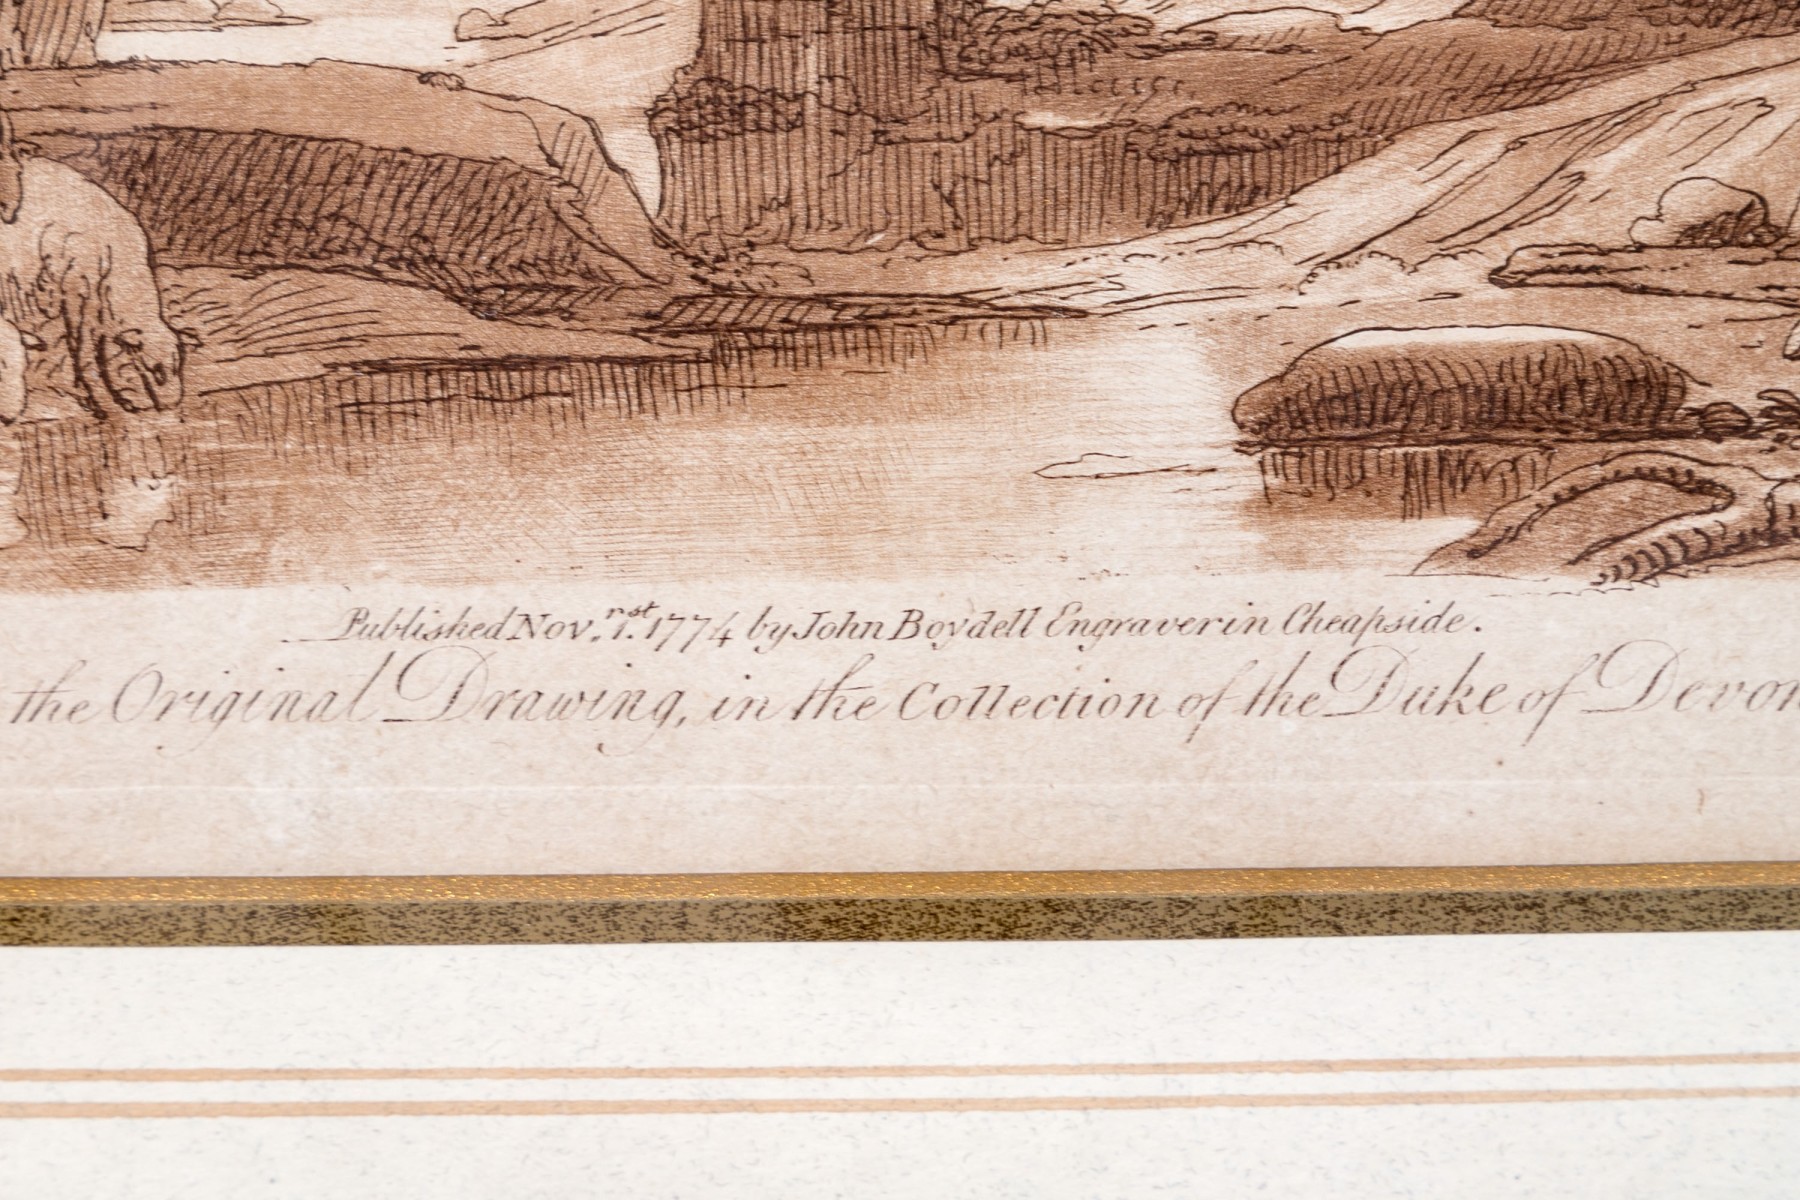 Published Nov.r 1.st 1774 by John Boydell Engraver in Cheapside.
the Original Drawing, in the Collection of the Duke of Devon